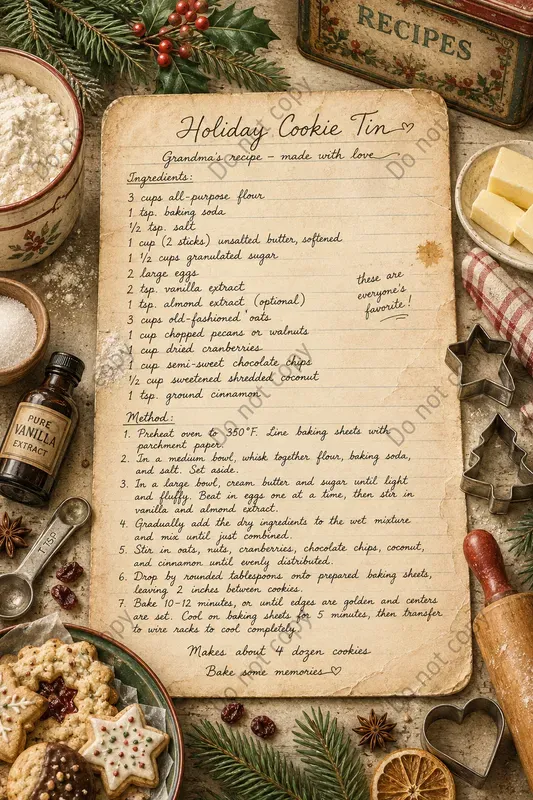 RECIPES
Holiday Cookie Tin
Grandma's recipe – made with love
Ingredients:
3 cups all-purpose flour
1 tsp. baking soda
1/2 tsp. salt
1 cup (2 sticks) unsalted butter, softened
1 1/2 cups granulated sugar
2 large eggs
2 tsp. vanilla extract
1 tsp. almond extract (optional)
3 cups old-fashioned oats
1 cup chopped pecans or walnuts
1 cup dried cranberries
1 cup semi-sweet chocolate chips
1/2 cup sweetened shredded coconut
1 tsp. ground cinnamon
these are
everyone's
favorite!
Method:
1. Preheat oven to 350°F. Line baking sheets with
parchment paper.
2. In a medium bowl, whisk together flour, baking soda,
and salt. Set aside.
3. In a large bowl, cream butter and sugar until light
and fluffy. Beat in eggs one at a time, then stir in
vanilla and almond extract.
4. Gradually add the dry ingredients to the wet mixture
and mix until just combined.
5. Stir in oats, nuts, cranberries, chocolate chips, coconut,
and cinnamon until evenly distributed.
6. Drop by rounded tablespoons onto prepared baking sheets,
leaving 2 inches between cookies.
7. Bake 10-12 minutes, or until edges are golden and centers
are set. Cool on baking sheets for 5 minutes, then transfer
to wire racks to cool completely.
Makes about 4 dozen cookies
Bake some memories
PURE
VANILLA
EXTRACT
1 TSP
Do not copy
Do not copy
Do not copy
Do not copy
Do not copy
Do not copy
Do not copy